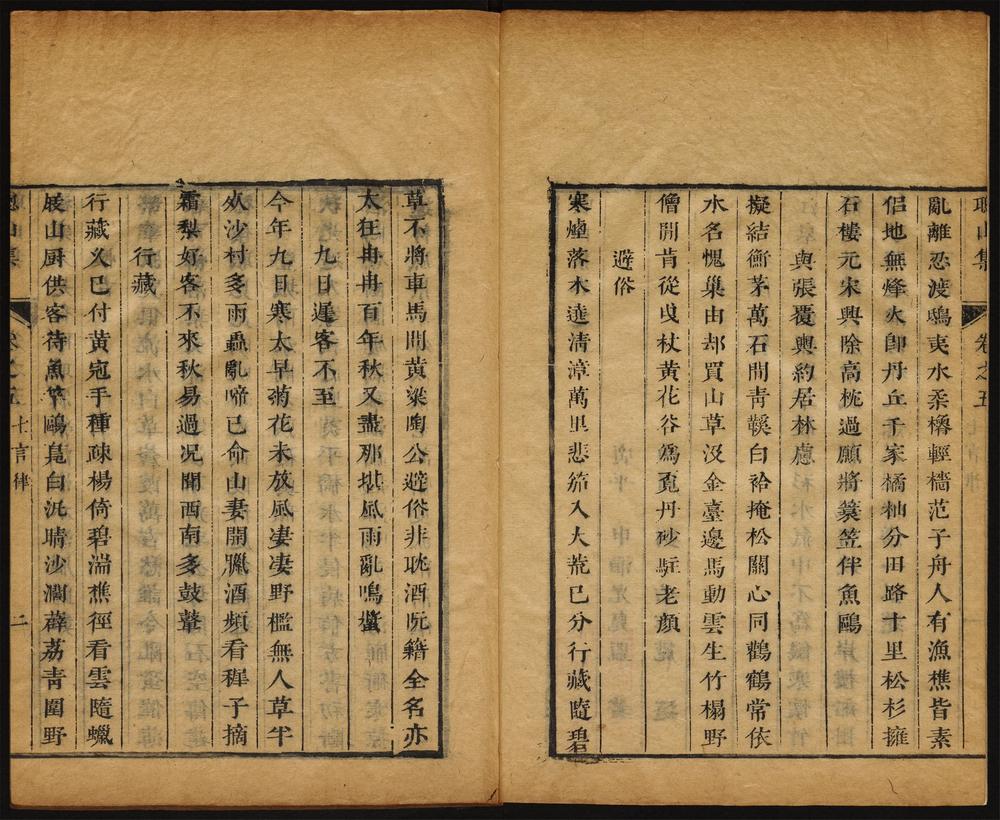 聰山集 卷之五
亂離忍渡鴟夷水柔櫓輕檣范子舟人有漁樵皆素
侶地無烽火卽丹丘千家橘柚分田路十里松杉擁
石樓元宋興除高枕過願將簑笠伴魚鷗
與張覆輿約居林慮
擬結衡茅萬石間靑鞵白袷掩松關心同鸛鶴常依
水名愧巢由却買山草沒金臺邊馬動雲生竹榻野
僧閒肯從曳杖黃花谷爲覓丹砂駐老顏
避俗
寒煙落木遶淸漳萬里悲笳入大荒已分行藏隨碧
草不將車馬問黃粱陶公避俗非耽酒阮籍全名亦
太狂冉冉百年秋又盡那堪風雨亂鳴螿
九日遲客不至
今年九日寒太早菊花未放風凄凄野檻無人草半
欹沙村多雨蟲亂啼已命山妻開臘酒頻看稺子摘
霜梨好客不來秋易過況聞西南多鼓鼙
行藏
行藏义已付黃寃手種疎楊倚碧湍樵徑看雲隨蠟
屐山厨供客待魚竿鷗鳧白汎晴沙濶薜荔靑圍野
聰山集 卷之五 七言律 二